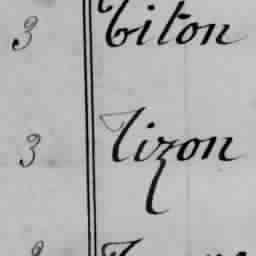 3 Titon
3 Tizon